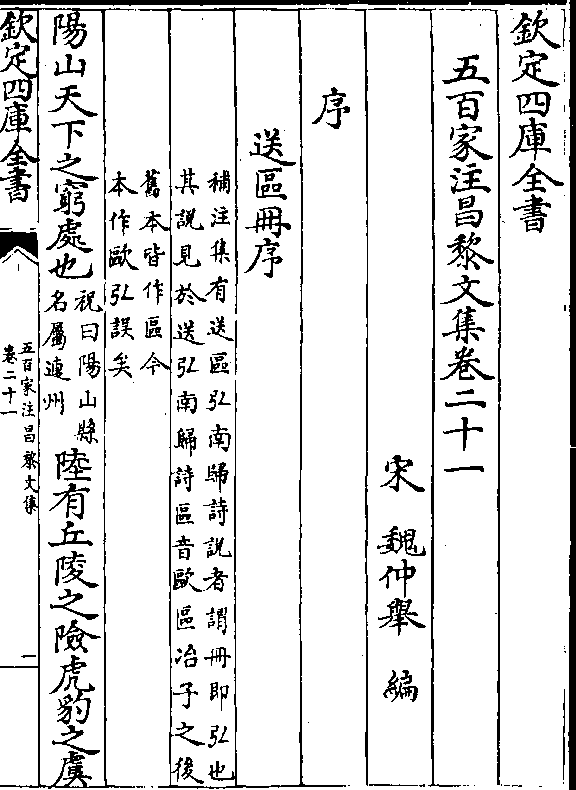 欽定四庫全書
五百家注昌黎文集卷二十一
宋 魏仲舉 編
序
送區冊序
補注集有送區弘南歸詩說者謂冊即弘也
其說見於送弘南歸詩區音歐區冶子之後
舊本皆作區今
本作歐弘誤矣
陽山天下之窮處也
祝曰陽山縣
名屬連州
陸有丘陵之險虎豹之虞
欽定四庫全書
五百家注昌黎文集
卷二十一
一